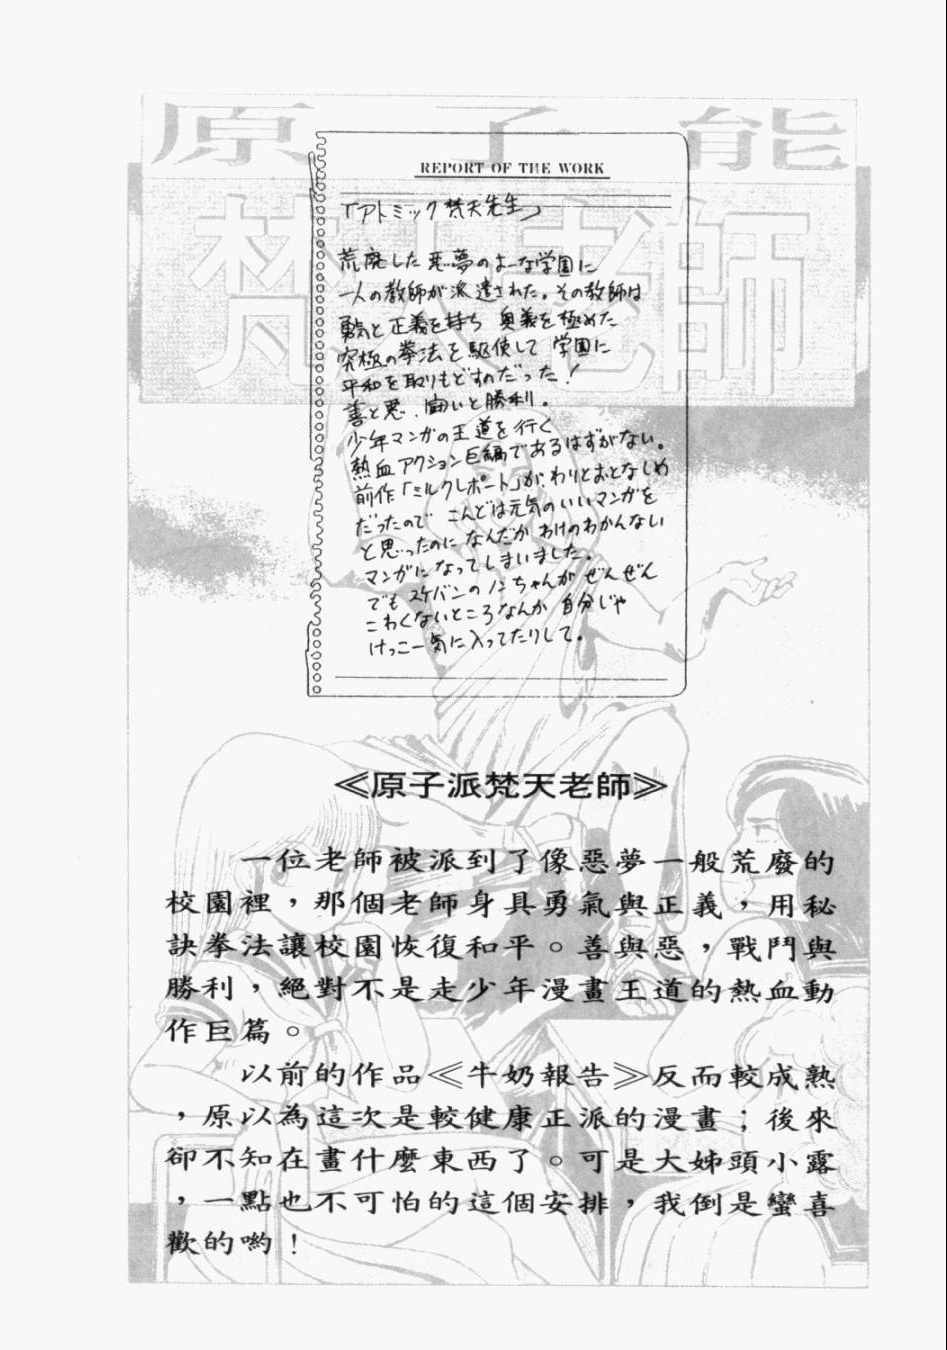 原子能
梵天老師
REPORT OF THE WORK
「アトミック梵天先生」
荒廃した悪夢のよーな学園に
一人の教師が派遣された。その教師は
勇気と正義を持ち 奥義を極めた
究極の拳法を駆使して 学園に
平和を取りもどすのだった!
善と悪、闘いと勝利。
少年マンガの王道を行く
熱血アクション巨編であるはずがない。
前作「ミルクレポート」が、わりとおとなしめ
だったので こんどは元気のいいマンガを
と思ったのに なんだか わけのわかんない
マンガになってしまいました。
でも スケバンの ちゃんが ぜんぜん
こわくないところなんか 自分じゃ
けっこー気に入ってたりして。
≪原子派梵天老師≫
一位老師被派到了像惡夢一般荒廢的
校園裡，那個老師身具勇氣與正義，用秘
訣拳法讓校園恢復和平。善與惡，戰鬥與
勝利，絕對不是走少年漫畫王道的熱血動
作巨篇。
以前的作品≪牛奶報告≫反而較成熟
，原以為這次是較健康正派的漫畫；後來
卻不知在畫什麼東西了。可是大姊頭小露
，一點也不可怕的這個安排，我倒是蠻喜
歡的喲！